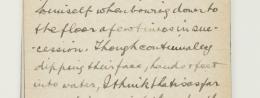 himself when bowing down to
the floor a few times in suc-
cession. Though continually
dipping their face, hands & feet
into water, I think that is as far